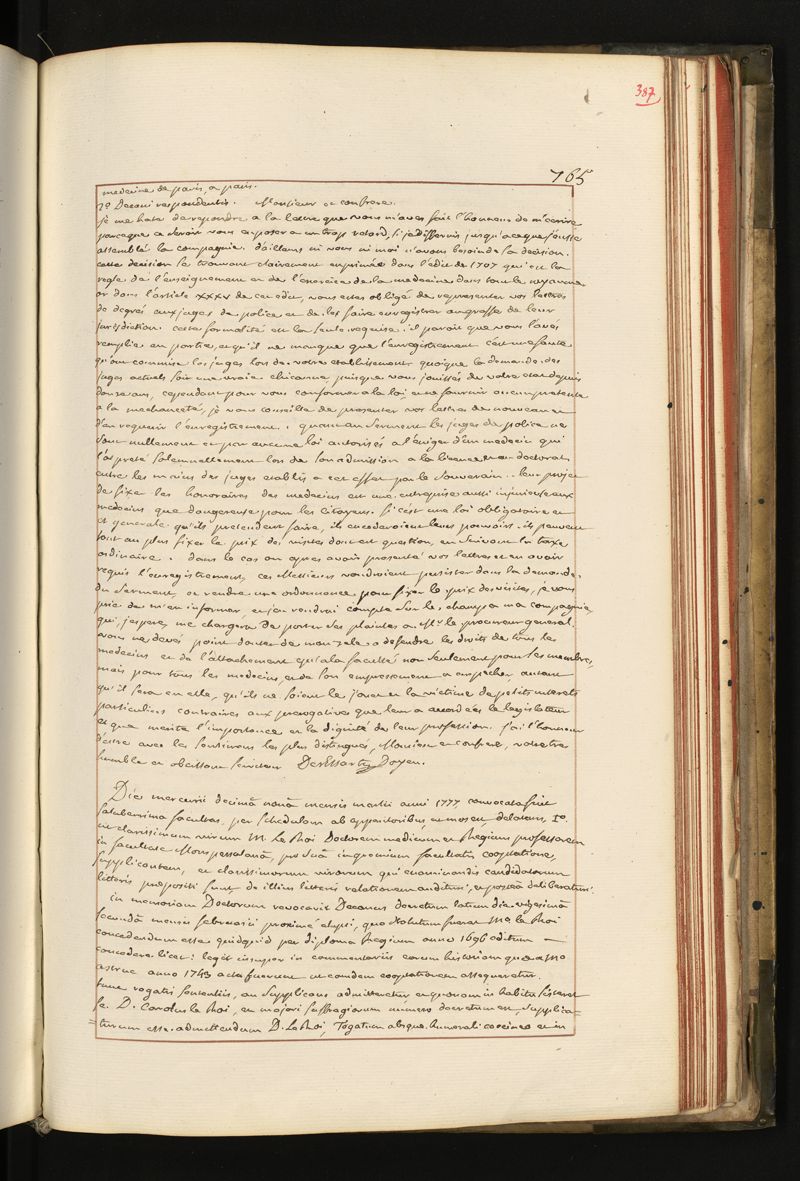 387
765
medecine de paris, a paris.
2º Decani respondentis. Monsieur et confrere.
je me hate de repondre a la lettre que vous m'aves fait l'honneur de m'ecrire
parceque ce seroit vous exposer a un trop retard, si je differois jusqu'a ce que j'eusse
assemblé la compagnie. d'ailleurs ni vous ni moi n'avons besoin de sa decision.
cette decision se trouvant clairement exprimée dans l'edit de 1707 qui est la
regle de l'enseignement et de l'exercice de la medecine dans tout le royaume
or dans l'article XXXV de cet edit, vous estes obligé de representer vos lettres
de degrés aux juges de police et de les faire enregistrer au greffe de leur
jurisdiction. cette formalité est la seule requise. il paroit que vous l'aves
remplie en partie, et qu'il ne manque que l'enregistrement c'est une faute
qu'ont commise les juges lors de votre etablissement quoique la demande des
juges actuels soit une vraie chicanne puisque vous jouissés de votre etat depuis
douze ans, cependant pour vous conformer a la loi et ne fournir aucun pretexte
a la mechanceté, je vous conseille de presenter vos lettres de nouveau et
d'en requerir l'enregistrement. quant au serment les juges de police ne
sont nullement et par aucune loi autorisés a l'exiger d'un medecin qui
l'a preté solemnellement lors de son admission a la licence et au doctorat
entre les mains des juges etablis a cet effet par le souverain. leur projet
de fixer les honoraires des medecins est une entreprise aussi injurieuse aux
medecins que dangereuse pour les citoyens. si c'est une loi obligatoire et
et generale qu'ils pretendent faire, ils excederoient leurs pouvoirs. ils peuvent
tout au plus fixer le prix des visites dont est question, en suivant la taxe
ordinaire. dans le cas ou apres avoir presenté vos lettres et en avoir
requis l'enregistrement, ces Messieurs voudroient persister dans la demande
du serment, ou rendre une ordonnance pour fixer le prix des visites, je vous
prie de m'en informer, et j'en rendrai compte sur le champ a ma compagnie
qui, j'espere, me chargera de porter des plaintes a Mr. le procureur general.
vous ne devés point douter de mon zele a defendre les droits de tous les
medecins et de l'attachement qu'a la faculté non seulement pour ses membres,
mais pour tous les medecins, et de son empressement a empecher, autant
qu'il sera en elle, qu'ils ne soient le jouet et la victime de petits interets
particuliers contraires aux prerogatives que leur a accordées le legislateur
et que merite l'importance et la dignité de leur profession. j'ai l'honneur
d'etre avec les sentimens les plus distingués, Monsieur et confrere, votre tres
humble et obeissant serviteur DesEssartz Doyen.
Die mercurii decimâ nonâ mensis martii anni 1777 convocata fuit
saluberrima facultas, per schedulam ab apparitoribus, ex more delatam, 1º.
ut clarissimum virum M. Le Roi Doctorem medicum et Regium professorem
in facultate Monspessulanâ, pro suâ in gremium facultatis cooptatione,
supplicantem, et clarissimorum virorum qui examinandis candidatorum
litteris præpositi sunt de illius litteris relationem auditura, et postea deliberatura.
in memoriam Doctorum revocavit Decanus decretum latum die vigesimâ
secundâ mensis februarii proximè elapsi, quo statutum fuerat Mo. le Roi
concedendum esse quidquid per diploma Regium anno 1696 editum —
concedere licet: legit insuper in commentariis eorum historiam quæ a Mo
astruc anno 1743 acta fuerunt ut eamdem cooptationem assequeretur.
tunc rogatis sententiis, an supplicans admitteretur et quonam in habitu sisteret
se D. Carolus le Roi, ex majori suffragiorum numero decretum est, supplica-
=turum esse admittendum D. Le Roi, Togatum absque humerali coccineo et in